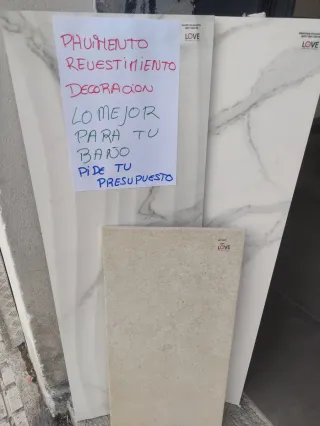 PAVIMENTO
REVESTIMIENTO
DECORACION
LO MEJOR
PARA TU
BAÑO
PIDE TU
PRESUPUESTO
LOVE
LOVE
LOVE